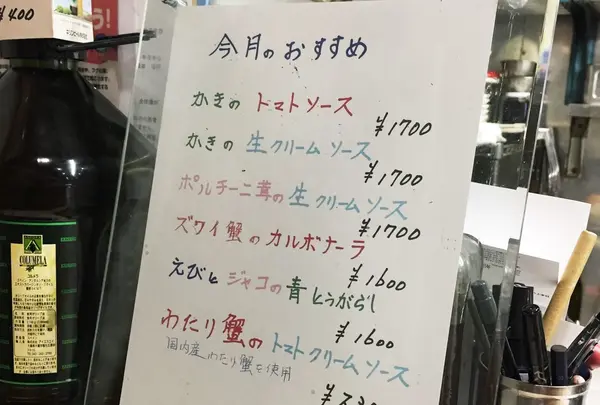 ¥400
今月のおすすめ
かきの トマトソース
¥1700
かきの 生クリームソース
¥1700
ポルチーニ茸の生クリームソース
¥1700
ズワイ蟹のカルボナーラ
¥1600
えびとジャコの青とうがらし
¥1600
わたり蟹のトマトクリームソース
国内産わたり蟹を使用
COLUMELA